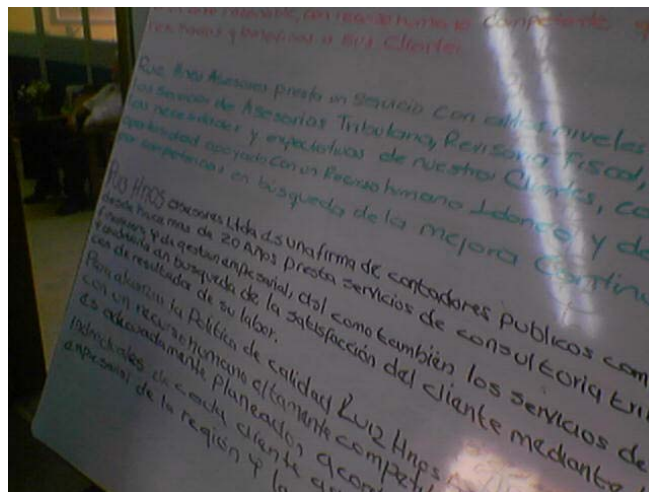 con recurso humano competente
y beneficios a sus Clientes
Ruiz Hnos Asesores presta un servicio con altos niveles
servicios de Asesorias Tributaria, Revisoria Fiscal,
las necesidades y expectativas de nuestros Clientes, co
oportunidad apoyado con un Recurso humano Idoneo y de
por competencias, en búsqueda de la mejora Continu
Ruiz Hnos asesores Ltda es una firma de contadores publicos com
desde hace mas de 20 Años presta servicios de consultoria tri
financiera y de gestion empresarial, asi como también los servicios de
y auditoria en busqueda de la satisfacción del cliente mediante
de resultados de su labor.
Para alcanzar la Politica de calidad Ruiz Hnos
con un recurso humano altamente compet
es adecuadamente planeados acord
individuales de cada cliente
empresarial de la región y la